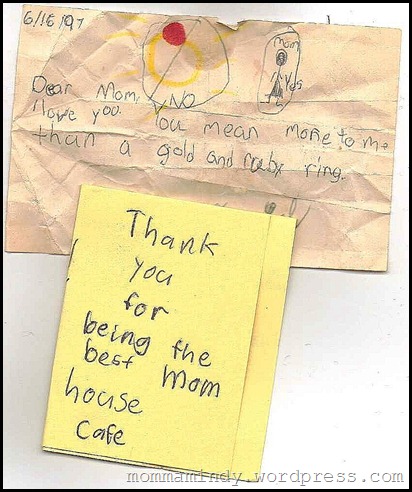 6/16/97
Mom
Yes
NO
Dear Mom,
I love you. You mean more to me
than a gold and ruby ring.
Thank
you
for
being the
best Mom
house
Cafe
mommamindy.wordpress.com